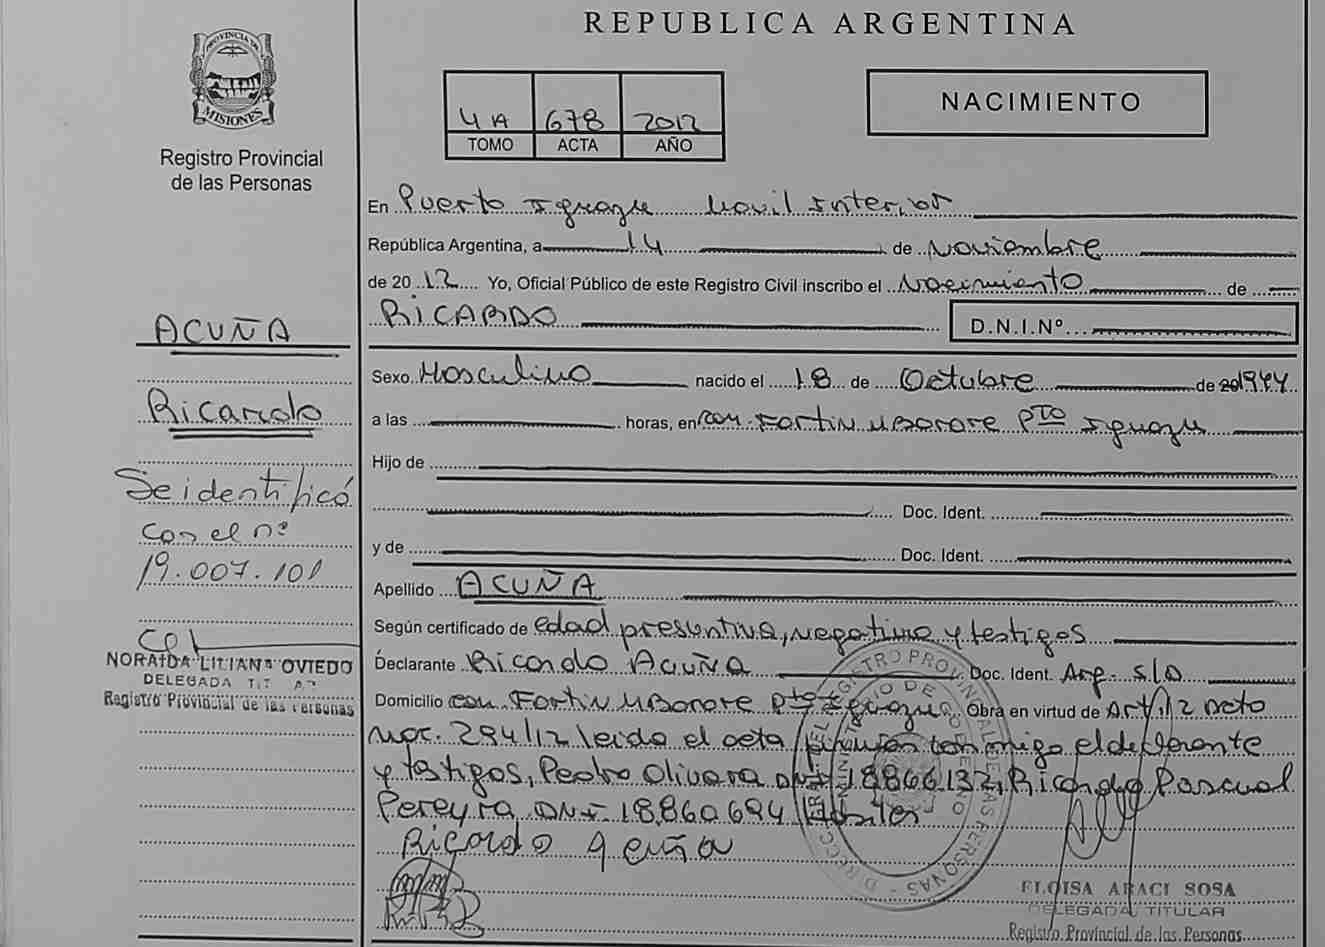 REPUBLICA ARGENTINA
PROVINCIA DE
MISIONES
Registro Provincial
de las Personas
4A 678 2012
TOMO ACTA AÑO
NACIMIENTO
En Puerto Iguazu Movil Interior
República Argentina, a 14 de Noviembre
de 2012 Yo, Oficial Público de este Registro Civil inscribo el Nacimiento de
RICARDO D.N.I.Nº
ACUÑA
Ricardo
Se identificó
con el nº
19.007.101
NORAIDA LILIANA OVIEDO
DELEGADA TIT
Registro Provincial de las Personas
Sexo Masculino nacido el 18 de Octubre de 1944
a las horas, en com. Fortin Mborore Pto Iguazu
Hijo de
Doc. Ident.
y de Doc. Ident.
Apellido ACUÑA
Según certificado de edad presuntiva, negativa y testigos
Declarante Ricardo Acuña Doc. Ident. Arg. S/D
Domicilio com. Fortin Mborore Pto Iguazu Obra en virtud de Art 1/2 Dcto
294/12 leido el acta firman conmigo el declarante
y testigos, Pedro Olivara DNI 18866132, Ricardo Pascual
Pereyra DNI 18.860.694
Ricardo Acuña
ELOISA ARACI SOSA
DELEGADA TITULAR
Registro Provincial de las Personas